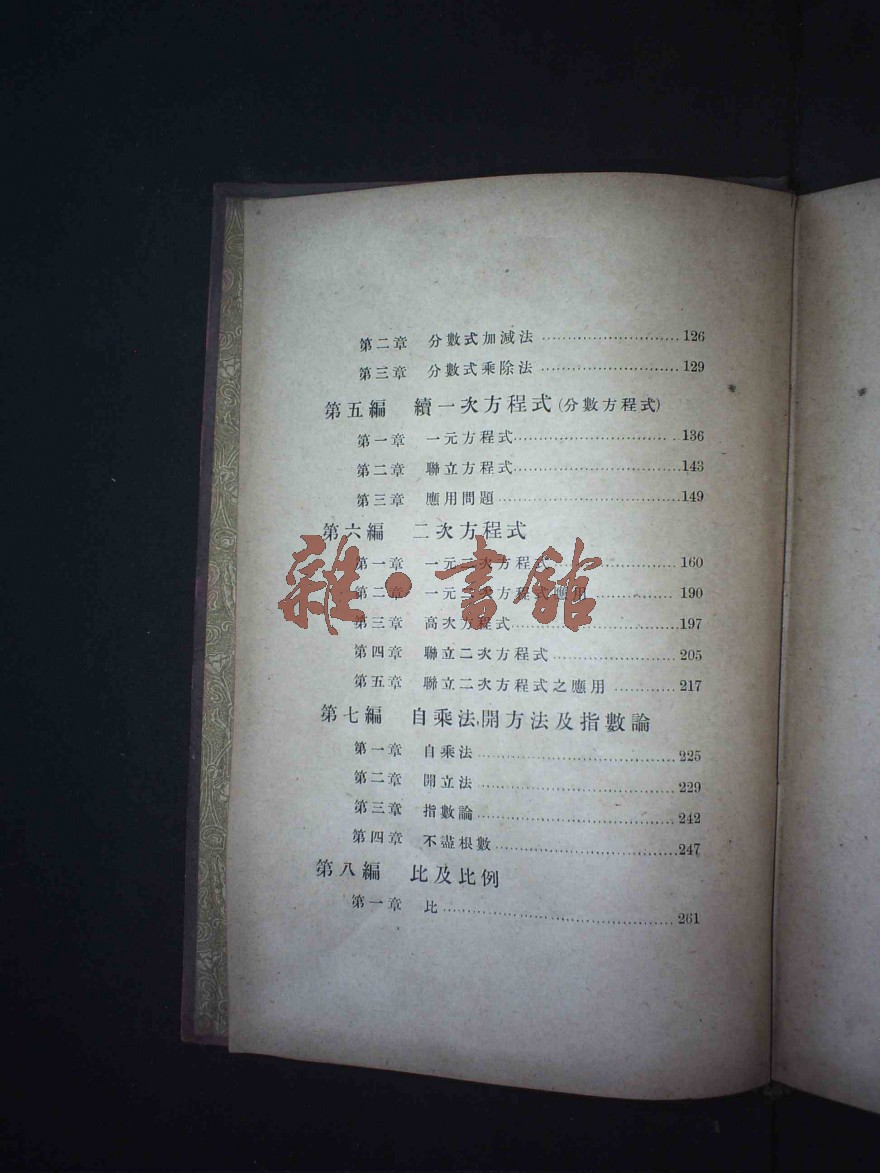 第二章 分數式加減法 ………………………126
第三章 分數式乘除法 ………………………129
第五編 續一次方程式(分數方程式)
第一章 一元方程式………………………136
第二章 聯立方程式………………………143
第三章 應用問題………………………149
第六編 二次方程式
第一章 一元二次方程式………………………160
第二章 一元二次方程式應用………………………190
第三章 高次方程式………………………197
第四章 聯立二次方程式………………………205
第五章 聯立二次方程式之應用………………………217
第七編 自乘法,開方法及指數論
第一章 自乘法………………………225
第二章 開立法………………………229
第三章 指數論………………………242
第四章 不盡根數………………………247
第八編 比及比例
第一章 比………………………261
雜·書館